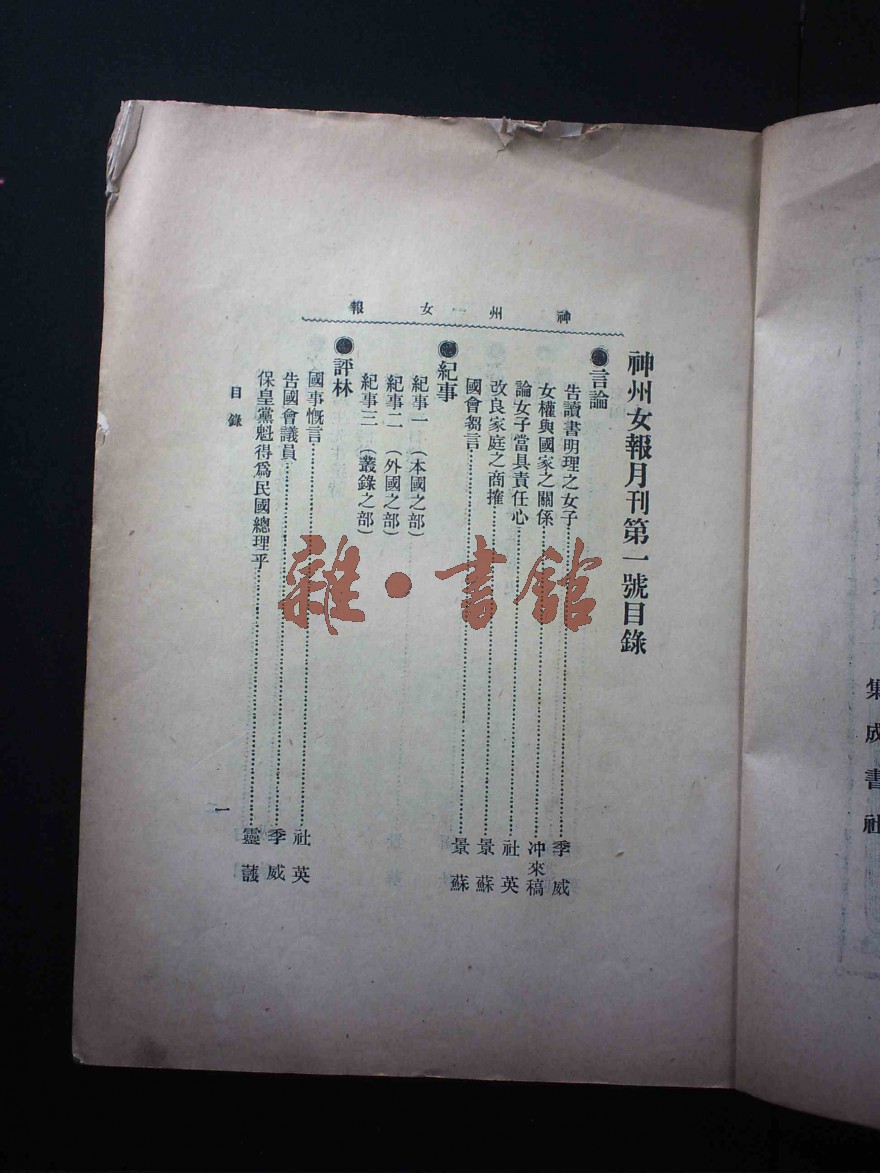 神州女報
神州女報月刊第一號目錄
●言論
告讀書明理之女子……季威
女權與國家之關係……冲來稿
論女子當具責任心……社英
改良家庭之商搉……景蘇
國會芻言……景蘇
●紀事
紀事一(本國之部)
紀事二(外國之部)
紀事三(叢錄之部)
●評林
國事慨言……社英
告國會議員……季威
保皇黨魁得爲民國總理乎……靈蘐
目錄
一
集成書社
雜·書館